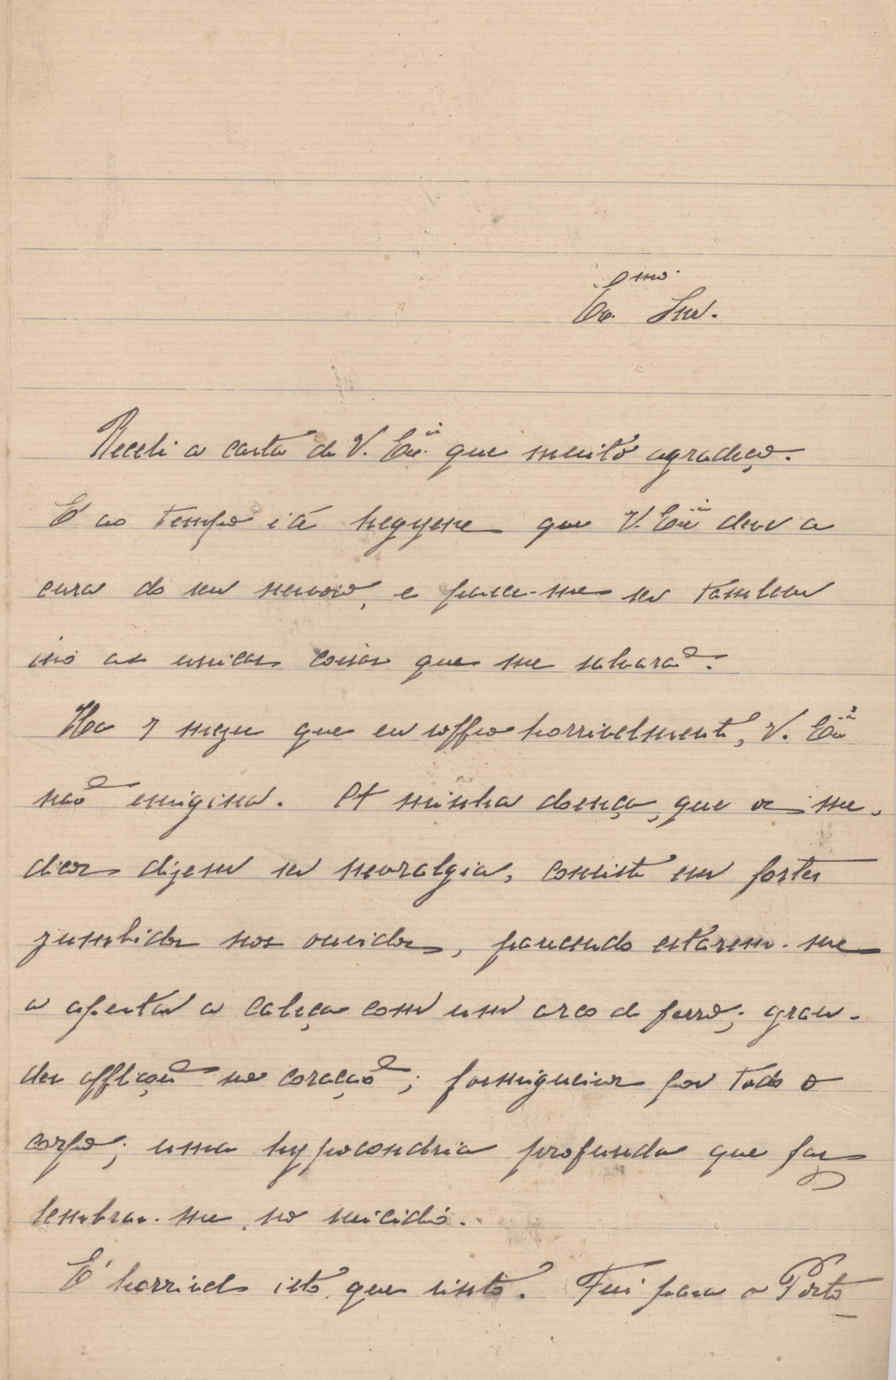 Exmo. Snr.
Recebi a carta de V. Exia. que muito agradeço.
É ao tempo e á hygyene que V. Exia deve a
cura do seu nervoso, e parece-me ser tambem
isso as unicas coisas que me salvarão.
Ha 7 mezes que eu soffro horrivelmente, V. Exia
não emigina. A minha doença, que os me-
dicos dizem ser nevralgia, consiste em fortes
zumbidos nos ouvidos, parecendo estarem-me
a apertar a cabeça com um arco de ferro; gran-
des afflições no coração; formigueiros por todo o
corpo; uma hypocondria profunda que faz
lembrar-me no suicidio.
É horrivel isto que sinto. Fui para o Porto